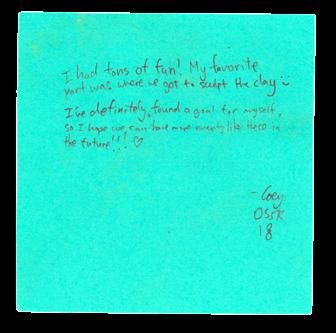 I had tons of fun! My favorite
part was where we got to sculpt the clay :)
I've definitely found a goal for myself,
so I hope we can have more events like these in
the future!!! ♡
- Coey
OSSK
18